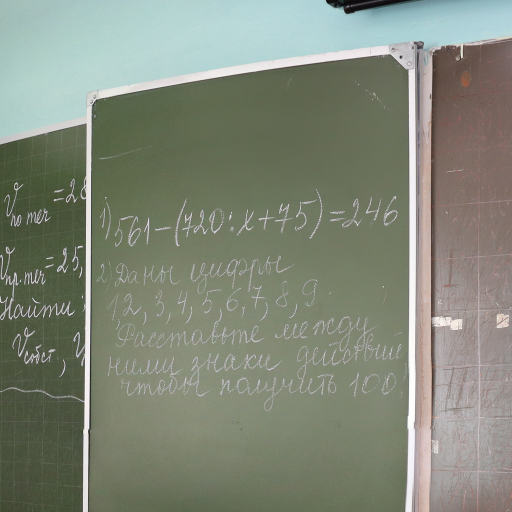 V по теч = 28
Vпр. теч = 25,
Найти
Vсобст, V
1) 561-(720:x+75)=246
2) Даны цифры
1,2,3,4,5,6,7,8,9.
Расставьте между
ними знаки действий
чтобы получить 100